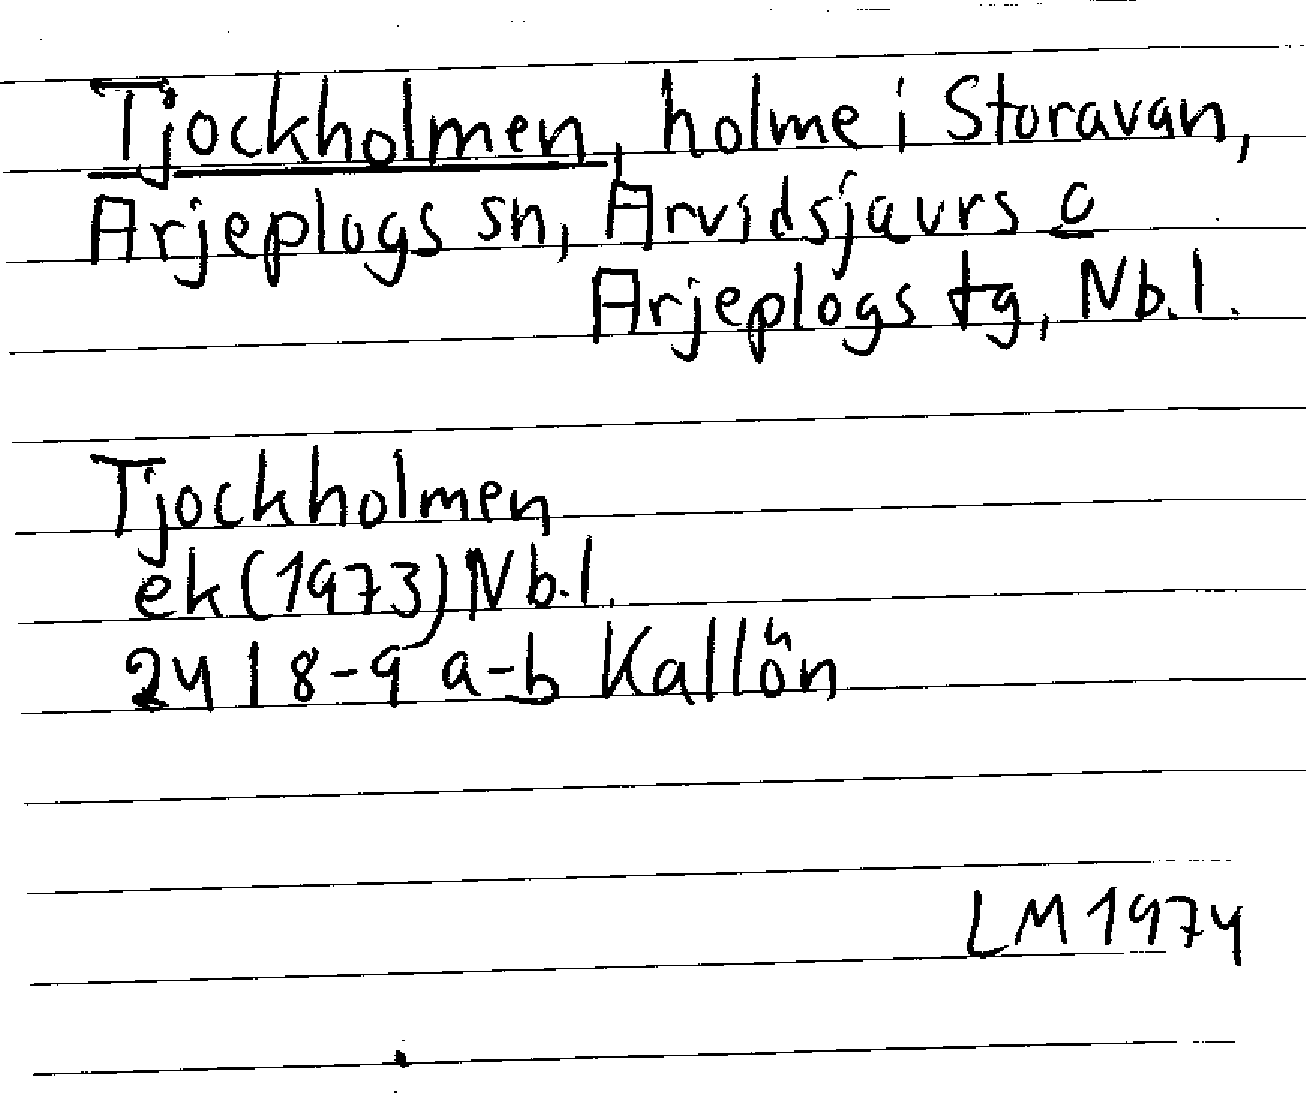 Tjockholmen, holme i Storavan,
Arjeplogs sn, Arvidsjaurs o
Arjeplogs tg, Nb.l.
Tjockholmen
ek (1973) Nb.l.
24 I 8-9 a-b Kallön
LM 1974